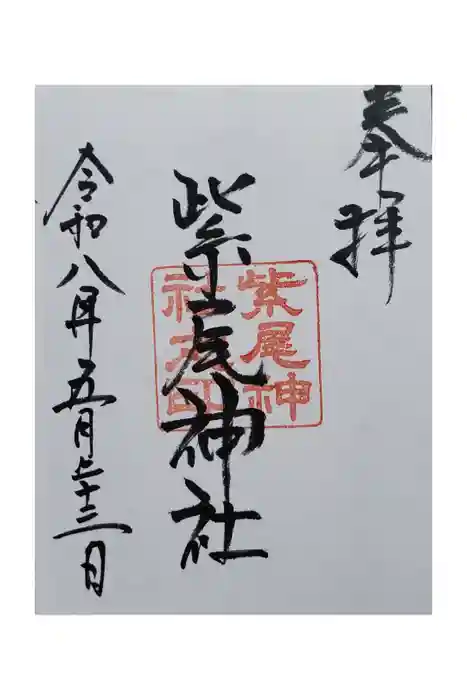 奉拝
紫尾神社
紫尾神
社之印
令和八年五月二十三日